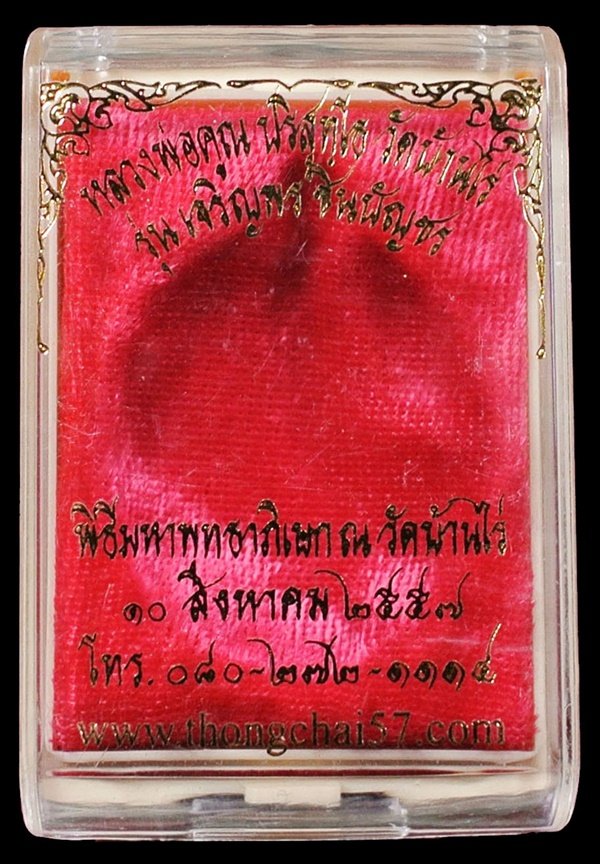 หลวงพ่อคูณ ปริสุทฺโธ วัดบ้านไร่
รุ่น เจริญพร ชินบัญชร
พิธีมหาพุทธาภิเษก ณ วัดบ้านไร่
๑๐ สิงหาคม ๒๕๕๗
โทร. ๐๘๐-๒๗๒-๑๑๑๔
www.thongchai57.com